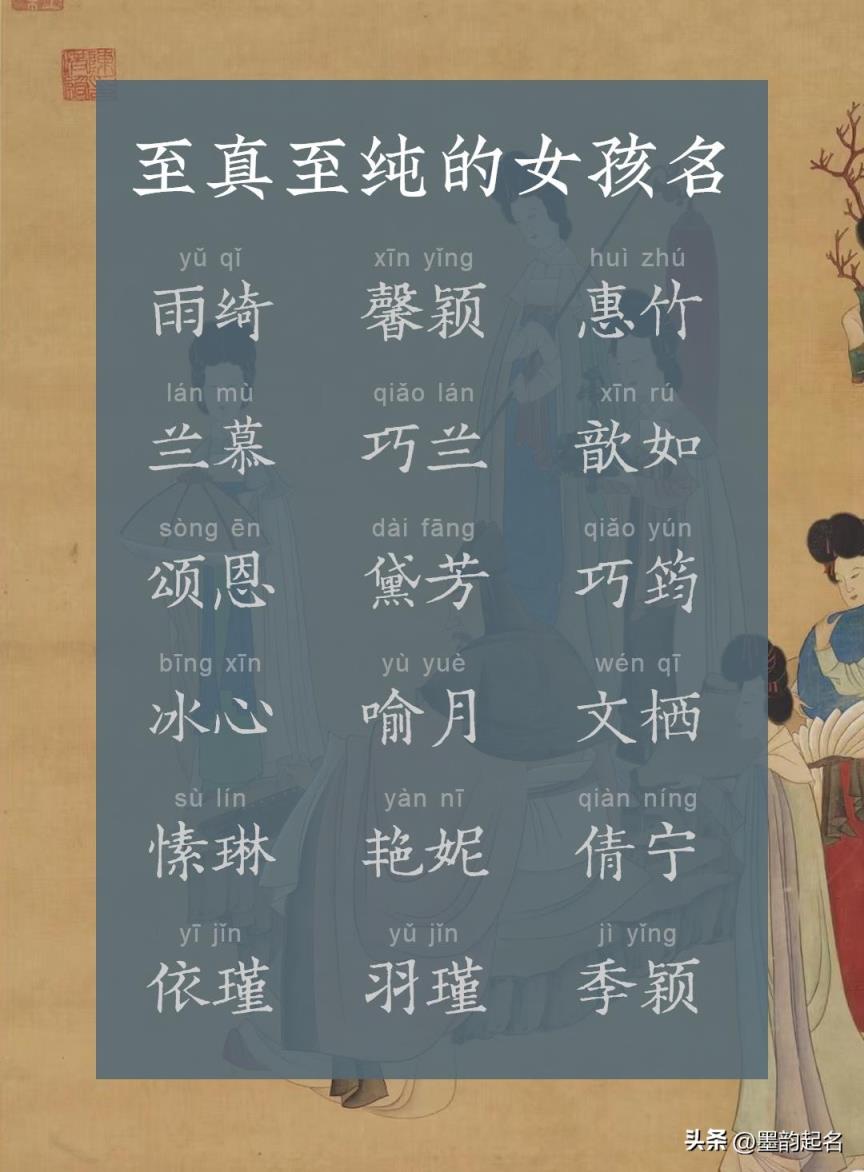 至真至纯的女孩名
yǔ qǐ xīn yǐng huì zhú
雨绮 馨颖 惠竹
lán mù qiǎo lán xīn rú
兰慕 巧兰 歆如
sòng ēn dài fāng qiǎo yún
颂恩 黛芳 巧筠
bīng xīn yù yuè wén qī
冰心 喻月 文栖
sù lín yàn nī qiàn níng
愫琳 艳妮 倩宁
yī jǐn yǔ jǐn jì yǐng
依瑾 羽瑾 季颖
头条 @墨韵起名